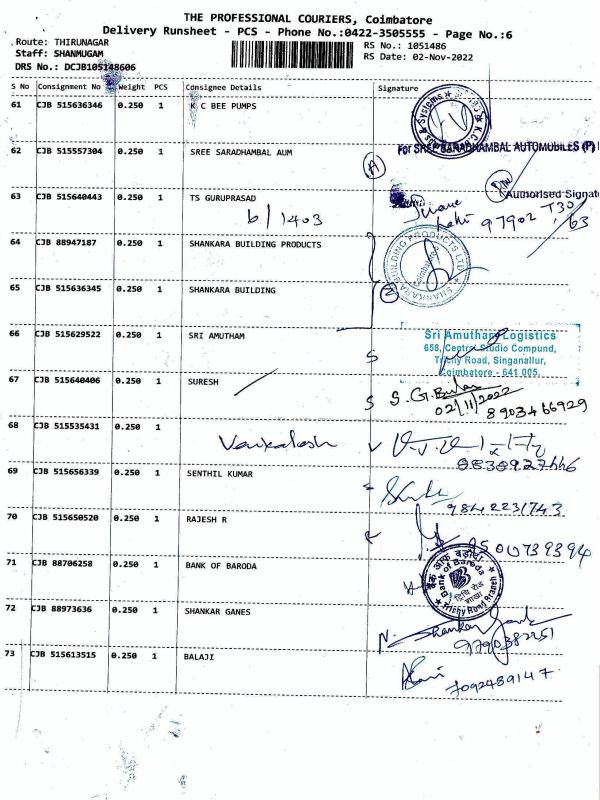 THE PROFESSIONAL COURIERS, Coimbatore
Delivery Runsheet - PCS - Phone No.:0422-3505555 - Page No.:6
Route: THIRUNAGAR
RS No.: 1051486
Staff: SHANMUGAM
RS Date: 02-Nov-2022
DRS No.: DCJB105148606
S No Consignment No Weight PCS Consignee Details Signature
61 CJB 515636346 0.250 1 K C BEE PUMPS
& Systems
62 CJB 515557304 0.250 1 SREE SARADHAMBAL AUM
For SREE SARADHAMBAL AUTOMOBILES (P)
Authorised Signat
63 CJB 515640443 0.250 1 TS GURUPRASAD
b/1403
97902 T30
63
64 CJB 88947187 0.250 1 SHANKARA BUILDING PRODUCTS
SHANKARA BUILDING PRODUCTS LTD
Coimbatore
65 CJB 515636345 0.250 1 SHANKARA BUILDING
66 CJB 515629522 0.250 1 SRI AMUTHAM
Sri Amutham Logistics
658, Centra Studio Compund,
Trichy Road, Singanallur,
Coimbatore - 641 005.
67 CJB 515640406 0.250 1 SURESH
S.G.
02/11/2022
8903466929
68 CJB 515535431 0.250 1
Venkatesh
69 CJB 515656339 0.250 1 SENTHIL KUMAR
9842231743
70 CJB 515650520 0.250 1 RAJESH R
9500739394
71 CJB 88706258 0.250 1 BANK OF BARODA
बैंक ऑफ़ बड़ौदा
Bank of Baroda
Trichy Road Branch
72 CJB 88973636 0.250 1 SHANKAR GANES
N. Shankar Ganesh
9790382251
73 CJB 515613515 0.250 1 BALAJI
7092489147